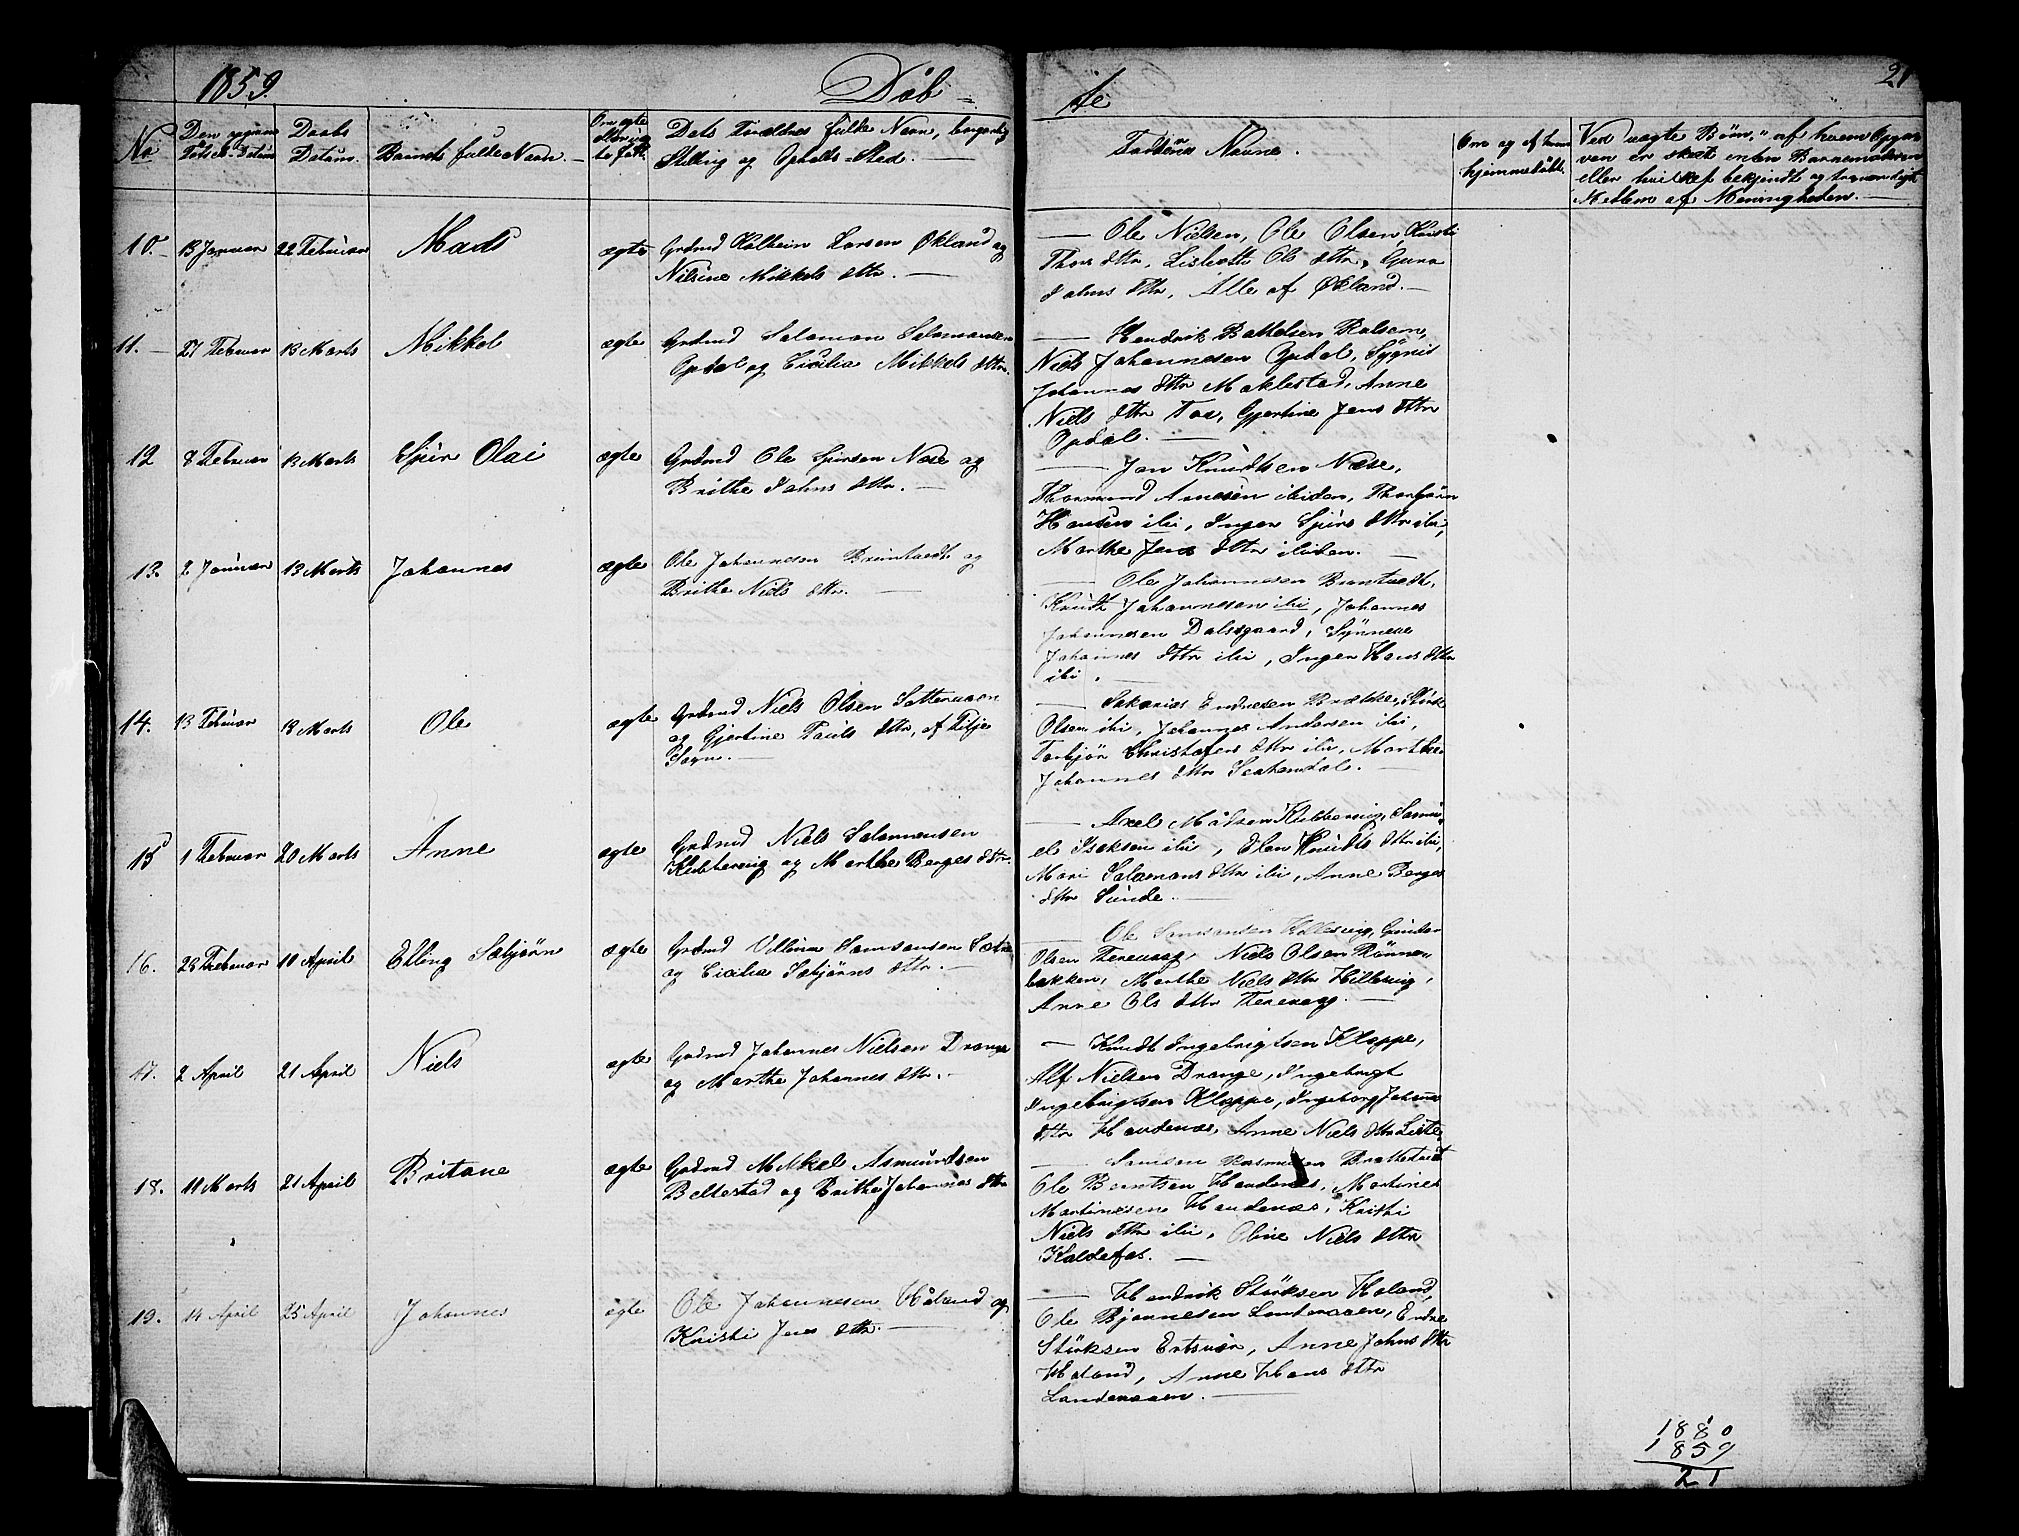 1859.
Døb-
te
21
No
Den opgivne
Fødsels-Datum
Daabs
Datum.
Barnets fulde Navn. —
Om ægte
eller uæg-
te født.
Dets Forældres fulde Navn, borgerlig
Stilling og Opholds-Sted. —
Faddernes Navne.
Om og af hvem
hjemmedøbt.
Ved uægte Børn, af hvem Opgi-
ven er skeet enten Barnemoderen
eller hvilket bekjendt og troværdigt
Medlem af Menigheden. —
10. 13 Januar 22 Februar Mads ægte Grdmd Kolbein Larsen Økland og
Nilsine Mikkels dttr. —
— Ole Nielsen, Ole Olsen, Kristi
Thors dttr, Lisbeth Ols dttr, Guro
Johns dttr, Alle af Økland. —
11. — 27 Februar 13 Marts Mikkel ægte Grdmd Salamon Salamonsen
Opdal og Cicilia Mikkels dttr.
— Hendrik Battelsen
Niels Johannesen Opdal, Sygni
Johannes dttr Maklestad, Anne
Niels dttr Toa, Gjertine Jens dttr
Opdal. —
12 8 Februar 13 Marts Sjur Olai ægte Grdmd Ole Sjursen Næse og
Brithe Johns dttr. —
— Jon Knudtsen Næse,
Thormund Arnesen ibiden, Thorbjørn
Hansen ibi, Inger Sjurs dttr ibi,
Marthe Jens dttr ibiden. —
13. 2 Januar 13 Marts Johannes ægte Ole Johannesen Bruntvedt og
Brithe Niels dttr. —
— Ole Johannesen Bruntvedt,
Knudt Johannesen ibi, Johannes
Johannesen Dalsgaard, Synneve
Johannes dttr ibi, Inger Hans dttr
ibi.
14. 13 Februar 13 Marts Ole ægte Grdmd Niels Olsen
og Gjertine Pauls dttr, af Fitje
Sogn. —
— Sakarias Endresen Brække, Størk
Olsen ibi, Johannes Andersen ibi,
Torbjør Christofers dttr ibi, Marthe
Johannes dttr
15 1 Februar 20 Marts Anne ægte Grdmd Niels Salamonsen
Klubbevig og Marthe Berges dttr.
— Axel Madsen Klubbevig, Samu-
el Isaksen ibi, Elen Knudts dttr ibi,
Mari Salamons dttr ibi, Anne Berges
dttr Sunde. —
16. 26 Februar 10 April Elling Sæbjørn ægte Grdmd Villum Samsonsen Sætre
og Cicilia Sæbjørns dttr. —
— Ole Samsonsen Hillesvig, Gunder
Olsen Terevaag, Niels Olsen Rønne-
bakken, Marthe Niels dttr Hillesvig,
Anne Ols dttr Terevaag. —
17. 2 April 21 April Niels ægte Grdmd Johannes Nielsen Drange
og Marthe Johannes dttr. —
— Knudt Ingebrigtsen Kloppe,
Alf Nielsen Drange, Ingebrigt
Ingebrigtsen Kloppe, Ingeborg Johannes
dttr Haudenæs, Anne Niels dttr
18. 11 Marts 21 April Britane ægte Grdmd Mikkel Asmundsen
Beltestad og Brithe Johannes dttr
— Samson Rasmusen
Ole Barntsen Haudenæs, Martines
Martinesen Haudenæs, Kristi
Niels dttr ibi, Oline Niels dttr
Kaldefos. —
19. 14 April 25 April Johannes ægte Ole Johannesen Håland og
Kristi Jens dttr. —
— Hendrik Størksen Holand,
Ole Bjørnesen Landeraaen, Endre
Størksen Ertsvær, Anne Johns dttr
Holand, Anne Hans dttr
Landeraaen. —
1880
1859
21